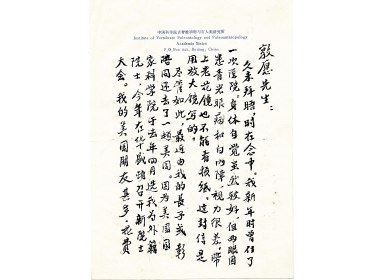 中国科学院古脊椎动物与古人类研究所
Institute of Vertebrate Paleontology and Paleoanthropology
Academia Sinica
P.O. Box 643, Beijing, China
殷愿先生：
久未拜晤，时在念中。我新年时曾住了
一次医院，身体自觉虽然较好，但两眼因
患青光眼病和白内障，视力很差，带
上老花镜也不能看报纸，这封信是
用放大镜写的。
尽管如此，最近由我的长子贾彰
陪同还去了一趟美国。因为美国国
家科学院于去年四月选我为外籍
院士，今年在华盛顿召开新院士
大会。我的美国朋友甚多，花费